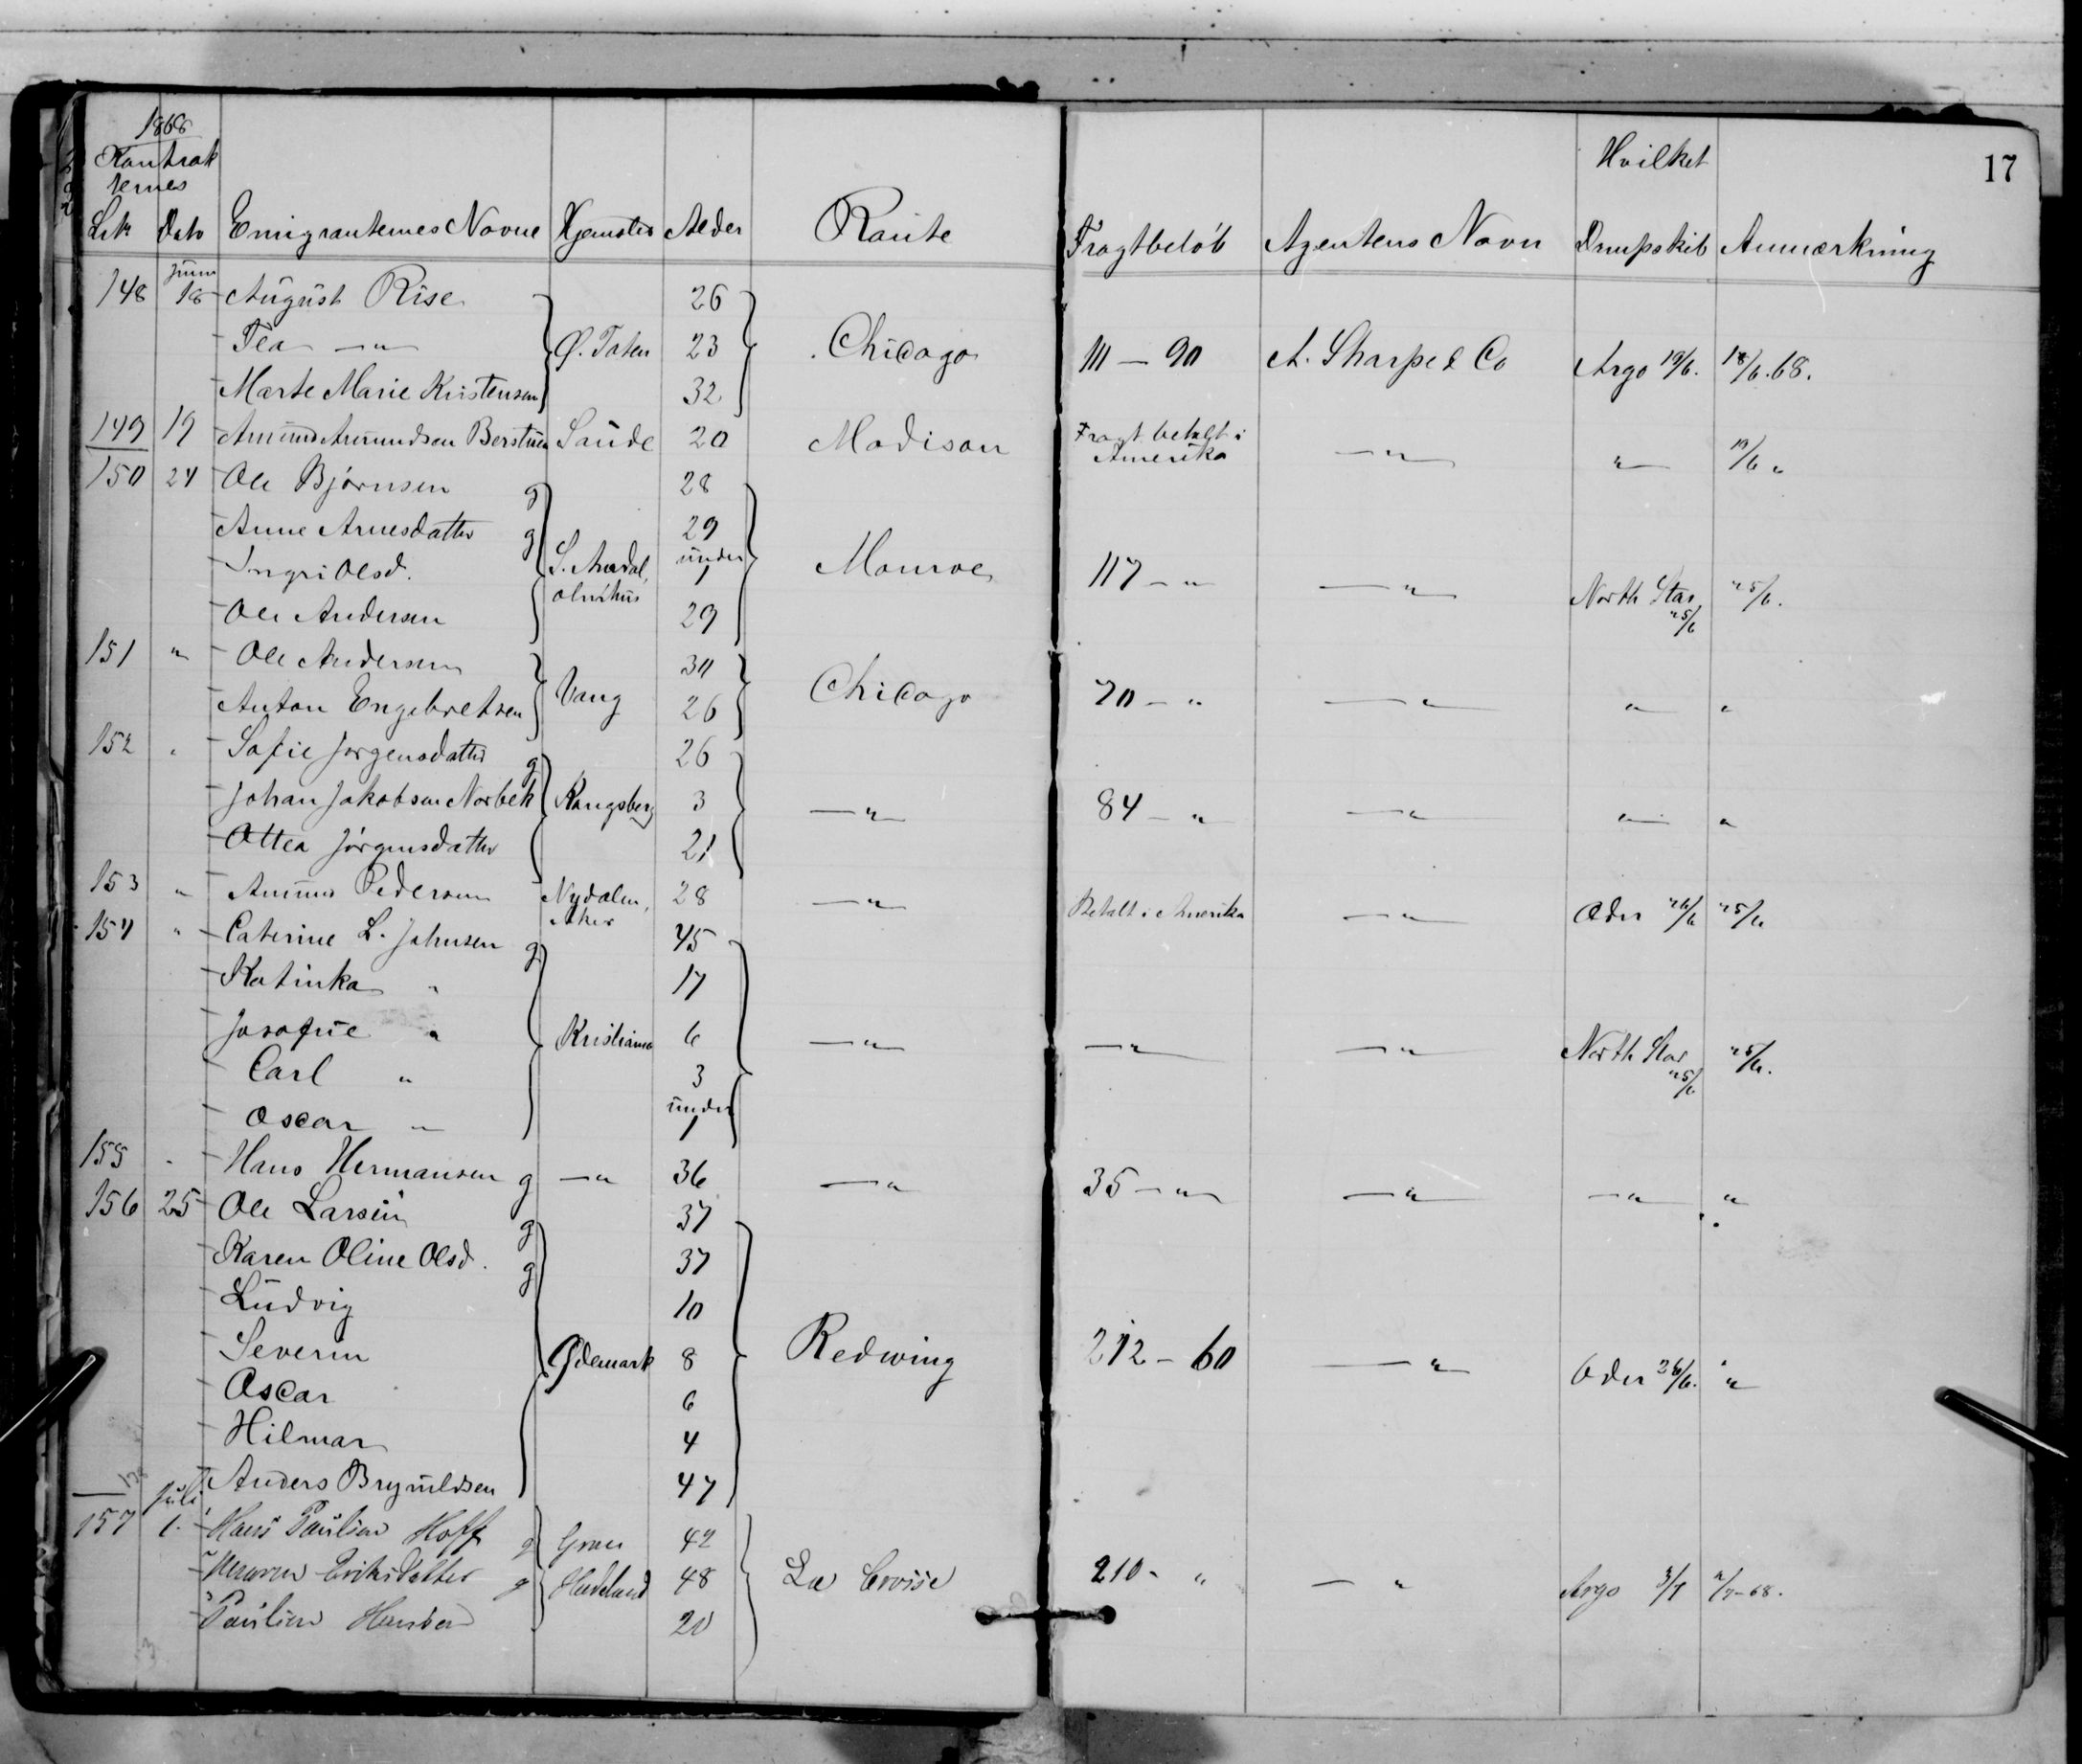 1868
Kontrak
ternes
Hvilket
17
Lit Dato Emigranternes Navne Hjemsted Alder Raute Fragtbeløb Agentens Navn Dampskib Anmærkning
Juni
148 18 August Rise 26
Tea —"— Ø. Toten 23 Chicago 111 — 90 A. Sharpe & Co Argo 19/6. 18/6.68.
Marte Marie Kristensen 32
149 19 Amund Amundsen Berstuen Saude 20 Madison Fragt betalt i Amerika —"— "— 19/6 "
150 24 Ole Bjørnsen g 28
Anne Arnesdatter g 29
Ingri Olsd. S. Aurdal, under 1 Monroe 117 — " —"— North Star 25/6 25/6.
Ole Andersen 29
151 " Ole Andersen 30
Anton Engebretsen Vang 26 Chicago 70 — " —"— —"— "
152 " Sofie Jørgensdatter g 26
Johan Jakobsen Norbek Kongsberg 3 —"— 84 — " —"— —"— "
Ottea Jørgensdatter 21
153 " Amund Pedersen Nydalen, Aker 28 —"— Betalt i Amerika —"— Oder 26/6 25/6
154 " Caterine L. Johnsen g 45
Katinka " 17
Josofine " Kristiania 6 —"— —"— —"— North Star 25/6 25/6.
Carl " 3
Oscar " under 1
155 " Hans Hermansen g —"— 36 —"— 35 — " —"— —"— "
156 25 Ole Larsen g 37
Karen Oline Olsd. g 37
Ludvig 10
Severin Ødemark 8 Redwing 212 — 60 —"— Oder 26/6. "
Oscar 6
Hilmar 4
Anders Brynildsen 47
Juli
157 1. Hans Paulsen Hoff g Gran 42
Eriksdatter g Hadeland 48 La Crosse 210 - " — " Argo 3/7 2/7-68.
Paulsen Hansen 20